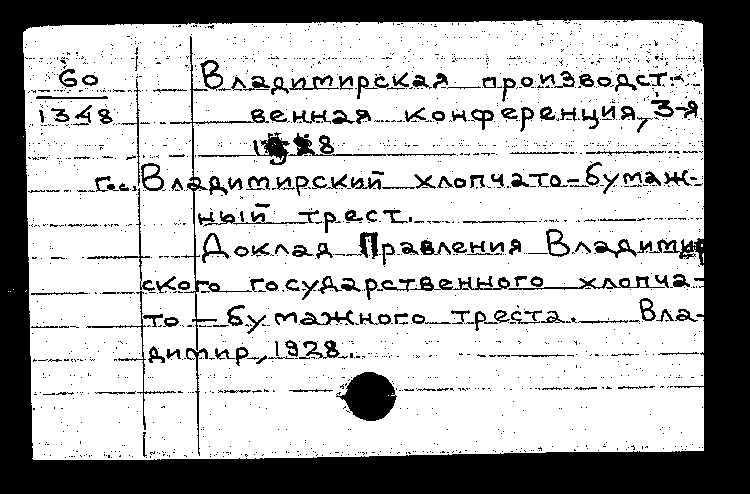 60
1348
Владимирская производст-
венная конференция, 3-я
1928
Гос. Владимирский хлопчато-бумаж-
ный трест.
Доклад Правления Владимир
ского государственного хлопча-
то-бумажного треста. Вла-
димир, 1928.